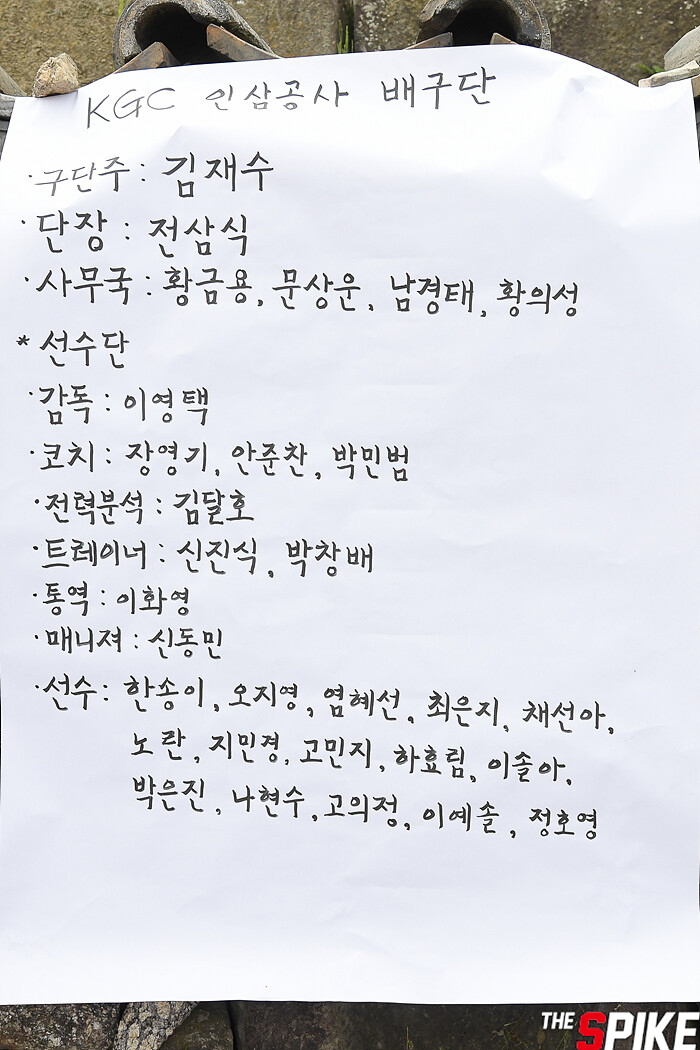 KGC 인삼공사 배구단
·구단주 : 김재수
·단장 : 전삼식
·사무국 : 황금용, 문상운, 남경태, 황의성
* 선수단
·감독 : 이영택
·코치 : 장영기, 안준찬, 박민범
·전력분석 : 김달호
·트레이너 : 신진식, 박창배
·통역 : 이화영
·매니져 : 신동민
·선수 : 한송이, 오지영, 염혜선, 최은지, 채선아,
노란, 지민경, 고민지, 하효림, 이솔아,
박은진, 나현수, 고의정, 이예솔, 정호영
THE SPIKE